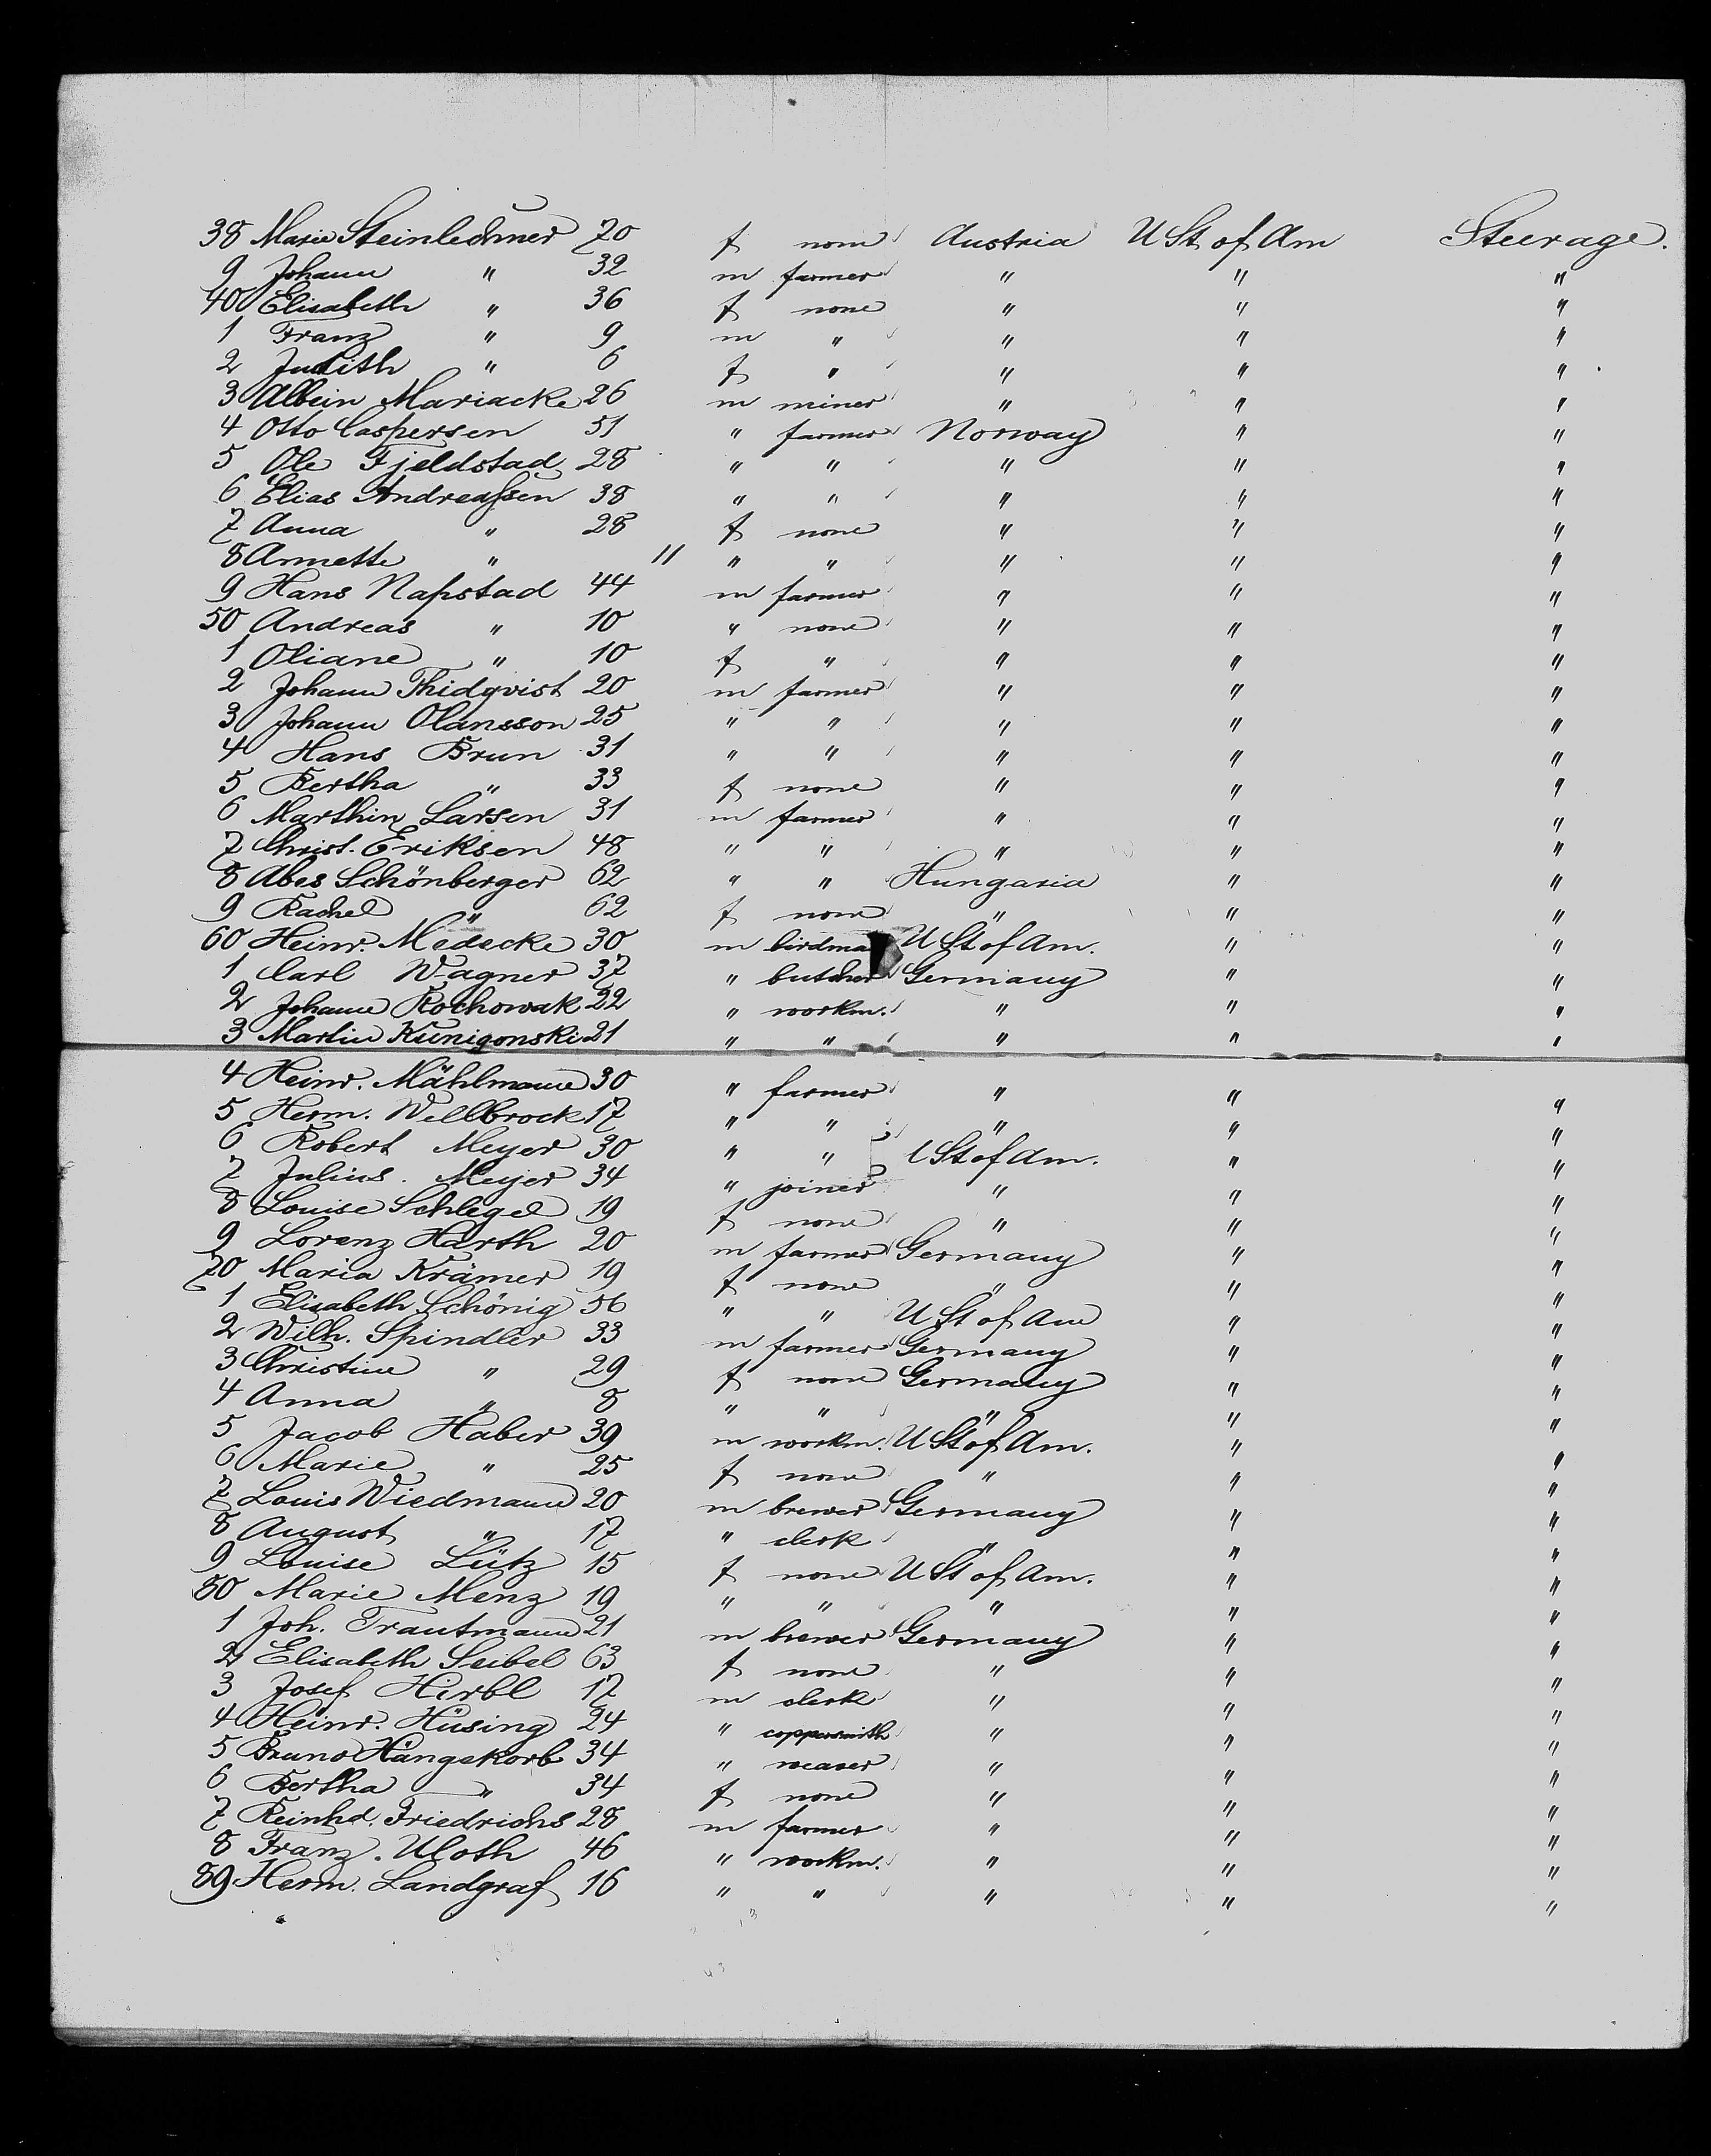 38 Marie Steinlechner 70 f none Austria U St of Am Steerage.
9 Johann " 32 m farmer " " "
40 Elisabeth " 36 f none " " "
1 Franz " 9 m " " " "
2 Judith " 6 f " " " "
3 Albein Mariacke 26 m miner " " "
4 Otto Caspersen 51 " farmer Norway " "
5 Ole Fjeldstad 28 " " " " "
6 Elias Andreassen 38 " " " " "
7 Anna " 28 f none " " "
8 Annette " 11 " " " " "
9 Hans Napstad 44 m farmer " " "
50 Andreas " 10 " none " " "
1 Oliane " 10 f " " " "
2 Johann Thidqvist 20 m farmer " " "
3 Johann Olansson 25 " " " " "
4 Hans Brun 31 " " " " "
5 Bertha " 33 f none " " "
6 Marthin Larsen 31 m farmer " " "
7 Christ. Eriksen 48 " " " " "
8 Abes Schönberger 62 " " Hungaria " "
9 Rachel " 62 f none " " "
60 Heinr. Medecke 30 m birdma U St of Am. " "
1 Carl Wagner 37 " butcher Germany " "
2 Johann Rochowak 22 " workm. " " "
3 Martin Kunigonski 21 " " " " "
4 Heinr. Mählmann 30 " farmer " " "
5 Herm. Wellbrock 17 " " " " "
6 Robert Meyer 30 " " U St of Am. " "
7 Julius. Meyer 34 " joiner " " "
8 Louise Schlegel 19 f none " " "
9 Lorenz Harth 20 m farmer Germany " "
70 Maria Krämer 19 f none " " "
1 Elisabeth Schönig 56 " " U St of Am " "
2 Wilh. Spindler 33 m farmer Germany " "
3 Christine " 29 f none Germany " "
4 Anna " 8 " " " " "
5 Jacob Haber 39 m workm. U St of Am. " "
6 Marie " 25 f none " " "
7 Louis Wiedmann 20 m brewer Germany " "
8 August " 17 " clerk " " "
9 Louise Lütz 15 f none U St of Am. " "
80 Marie Menz 19 " " " " "
1 Joh. Trautmann 21 m brewer Germany " "
2 Elisabeth Seibel 63 f none " " "
3 Josef Hirbl 17 m clerk " " "
4 Heinr. Hüsing 24 " coppersmith " " "
5 Bruno Hängekorb 34 " weaver " " "
6 Bertha " 34 f none " " "
7 Reinhd. Friedrichs 28 m farmer " " "
8 Franz. Uloth 46 " workm. " " "
89 Herm. Landgraf 16 " " " " "